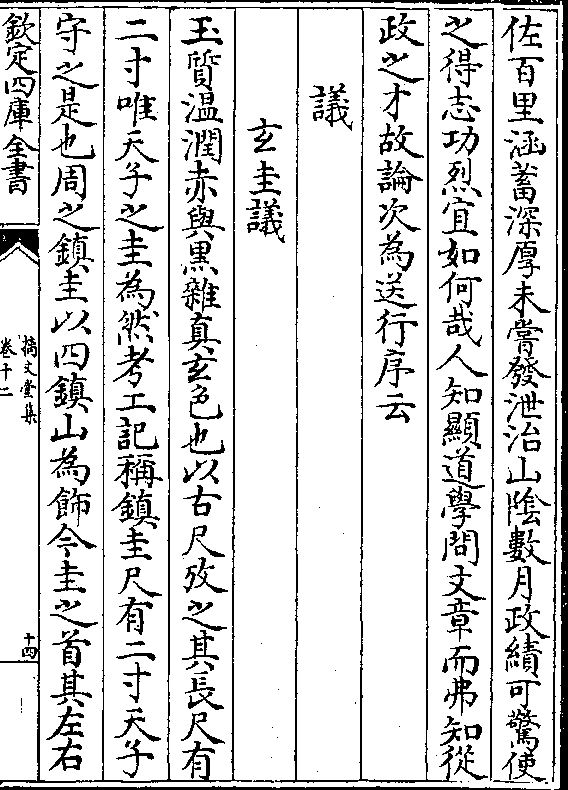 佐百里涵蓄深厚未嘗發泄治山隂數月政績可驚使
之得志功烈宜如何哉人知顯道學問文章而弗知從
政之才故論次為送行序云
議
玄圭議
玉質温潤赤與黒雜真玄色也以古尺攷之其長尺有
二寸唯天子之圭為然考工記稱鎮圭尺有二寸天子
守之是也周之鎮圭以四鎮山為飾今圭之首其左右
欽定四庫全書
摛文堂集
卷十二
十四